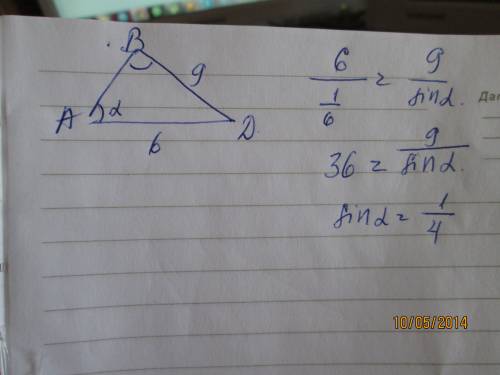 B
9
A α
D
6
6 / (1/6) = 9 / sinα.
36 = 9 / sinα.
sinα = 1/4
10/05/2014